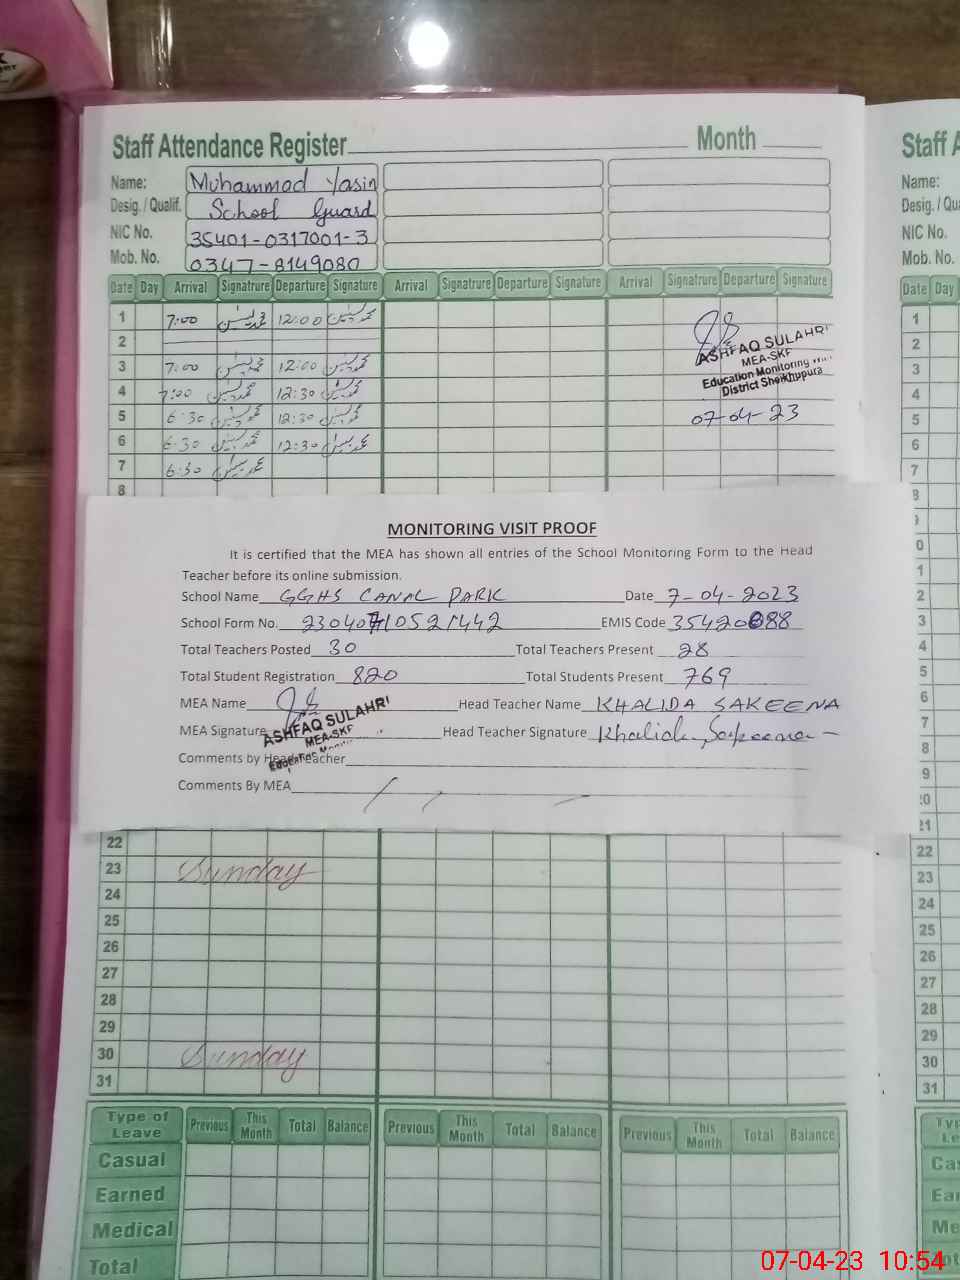 Staff Attendance Register Month
Name: Muhammad Yasin
Desig. / Qualif. School Guard
NIC No. 35401-0317001-3
Mob. No. 0347-8149080
Date Day Arrival Signatrure Departure Signature Arrival Signatrure Departure Signature Arrival Signatrure Departure Signature
1 7:00 محمد یٰسین 12:00 محمد یٰسین
2
3 7:00 محمد یٰسین 12:00 محمد یٰسین
4 7:00 محمد یٰسین 12:30 محمد یٰسین
5 6:30 محمد یٰسین 12:30 محمد یٰسین
6 6:30 محمد یٰسین 12:30 محمد یٰسین
7 6:30 محمد یٰسین
8
ASHFAQ SULAHRI
MEA-SKP
Education Monitoring
District Sheikhupura
07-04-23
MONITORING VISIT PROOF
It is certified that the MEA has shown all entries of the School Monitoring Form to the Head
Teacher before its online submission.
School Name GGHS CANAL PARK Date 7-04-2023
School Form No. 23040710521442 EMIS Code 35420888
Total Teachers Posted 30 Total Teachers Present 28
Total Student Registration 820 Total Students Present 769
MEA Name Head Teacher Name KHALIDA SAKEENA
MEA Signature Head Teacher Signature Khalida Sakeena
ASHFAQ SULAHRI
MEA-SKP
Comments by Head Teacher
Comments By MEA
22
23 Sunday
24
25
26
27
28
29
30 Sunday
31
Type of Leave Previous This Month Total Balance Previous This Month Total Balance Previous This Month Total Balance
Casual
Earned
Medical
Total
Staff A
Name:
Desig./Qu
NIC No.
Mob. No.
Date Day
1
2
3
4
5
6
7
22
23
24
25
26
27
28
29
30
31
07-04-23 10:54